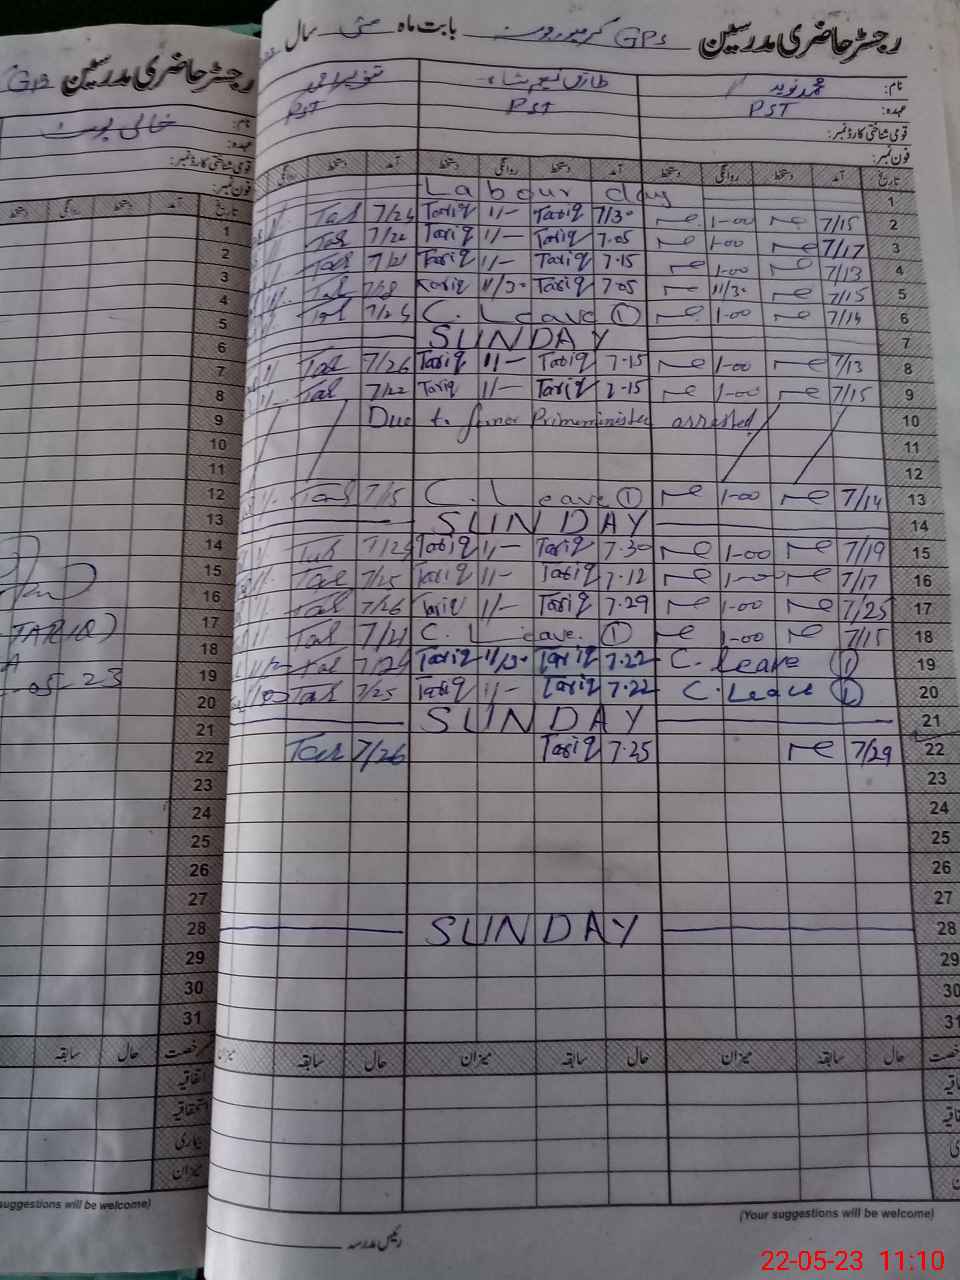 رجسٹر حاضری مدرسین GPS بابت ماہ مئی سال
نام: محمد نوید طارق نسیم شاہ تنویر احمد
عہدہ: PST PST PST
قومی شناختی کارڈ نمبر:
فون نمبر:
تاریخ آمد دستخط روانگی دستخط آمد دستخط روانگی دستخط آمد دستخط روانگی
1 Labour day
2 7/15 1-00 7/30 Tariq 11/- Tariq 7/24 Tas
3 7/17 1-00 7.05 Tariq 11/- Tariq 7/22 Tas
4 7/13 1-00 7.15 Tariq 11/- Tariq 7/21 Tas
5 7/15 11/30 7.05 Tariq 11/30 Tariq Tas
6 7/14 1-00 C. Leave ①
7 SUNDAY
8 7/13 1-00 7.15 Tariq 11/- Tariq 7/26 Tas
9 7/15 1-00 7.15 Tariq 11/- Tariq 7/22 Tas
10 Due to Primeminister arrested
11
12
13 7/14 1-00 C. Leave ① 7/15 Tas
14 SUNDAY
15 7/19 1-00 7.30 Tariq 11/- Tariq Tas
16 7/17 1-00 7.12 Tariq 11/- Tariq 7/25 Tas
17 7/25 1-00 7.29 Tariq 11/- Tariq 7/26 Tas
18 7/15 1-00 C. Leave. ① 7/21 Tas
19 C. Leave ① 7.22 Tariq 11/30 Tariq Tas
20 C. Leave ① 7.22 Tariq 11/- Tariq 7/25 Tas
21 SUNDAY
22 7/29 7.25 Tariq 7/26 Tas
23
24
25
26
27
28 SUNDAY
29
30
31
حال سابقہ میزان حال سابقہ میزان حال سابقہ میزان
(Your suggestions will be welcome)
رئیس مدرسہ
رجسٹر حاضری مدرسین
نام: خالی پوسٹ
عہدہ:
قومی شناختی کارڈ نمبر:
فون نمبر:
تاریخ آمد دستخط روانگی دستخط
1
2
3
4
5
6
7
8
9
10
11
12
13
14
15
16
17
18
19
20
21
22
23
24
25
26
27
28
29
30
31
(TARIQ)
-05-23
رخصت حال سابقہ
اتفاقیہ
استحقاقیہ
بیماری
میزان
suggestions will be welcome)
22-05-23 11:10